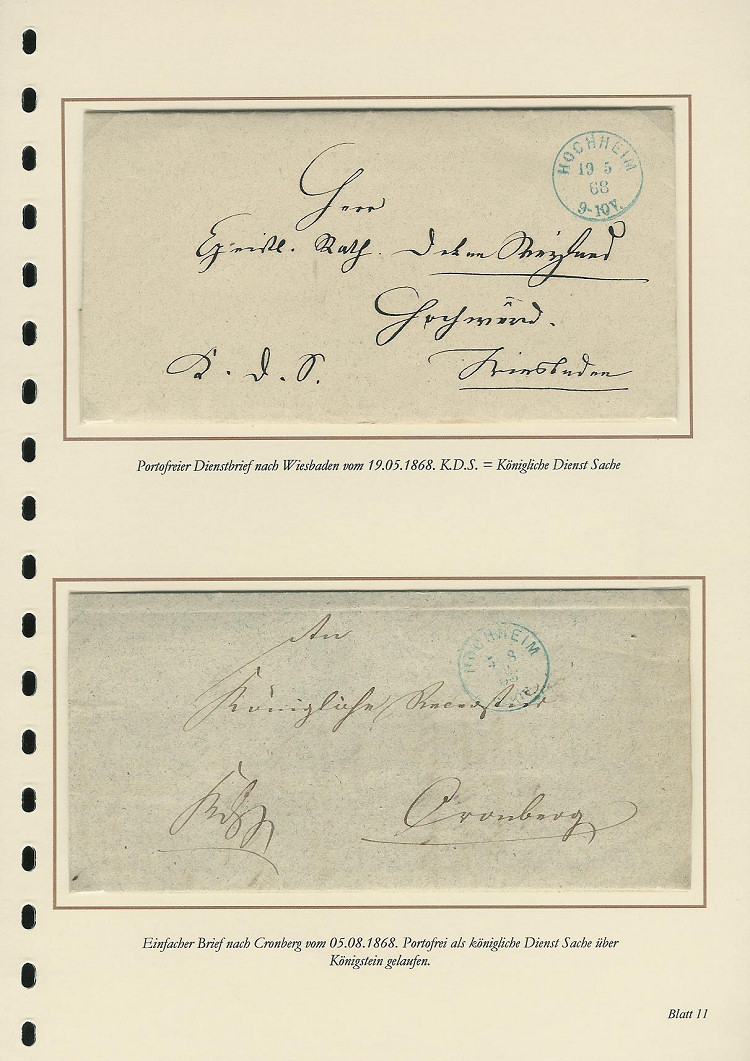 HOCHHEIM
19 5
68
9-10V.
Herr
Geistl. Rath. Dekan Weyland
Hochwürd.
K. D. S.
Wiesbaden
Portofreier Dienstbrief nach Wiesbaden vom 19.05.1868. K.D.S. = Königliche Dienst Sache
HOCHHEIM
5 8
An
Königliche Receptur
KdS
Cronberg
Einfacher Brief nach Cronberg vom 05.08.1868. Portofrei als königliche Dienst Sache über
Königstein gelaufen.
Blatt 11